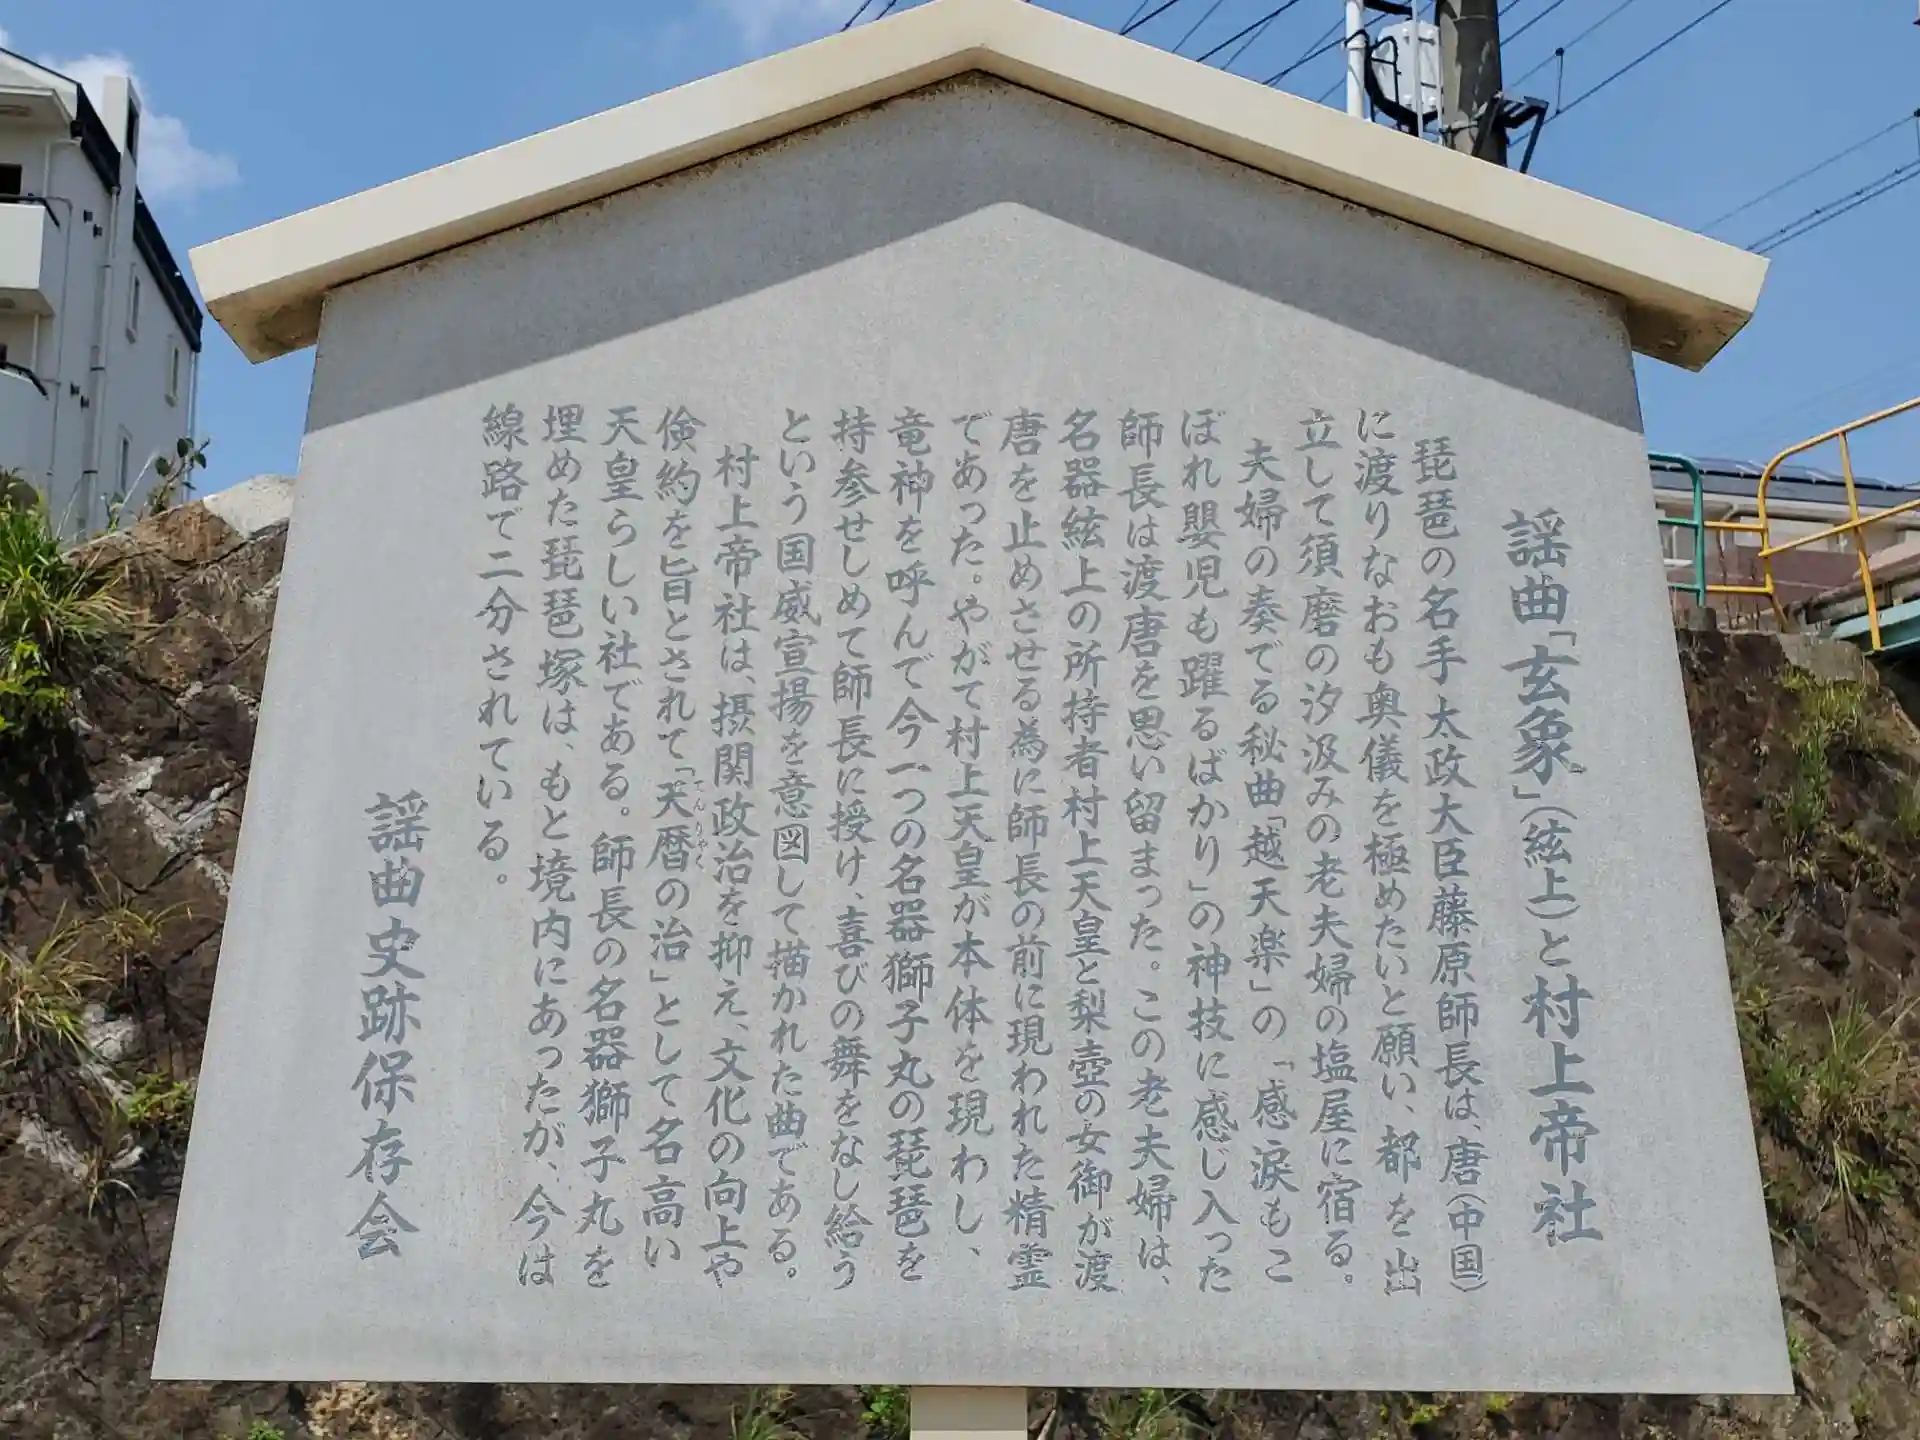 謡曲「玄象」(絃上)と村上帝社
琵琶の名手太政大臣藤原師長は、唐(中国)
に渡りなおも奥儀を極めたいと願い、都を出
立して須磨の汐汲みの老夫婦の塩屋に宿る。
夫婦の奏でる秘曲「越天楽」の「感涙もこ
ぼれ嬰児も躍るばかり」の神技に感じ入った
師長は渡唐を思い留まった。この老夫婦は、
名器絃上の所持者村上天皇と梨壺の女御が渡
唐を止めさせる為に師長の前に現われた精霊
であった。やがて村上天皇が本体を現わし、
竜神を呼んで今一つの名器獅子丸の琵琶を
持参せしめて師長に授け、喜びの舞をなし給う
という国威宣揚を意図して描かれた曲である。
村上帝社は、摂関政治を抑え、文化の向上や
倹約を旨とされて「天暦の治」として名高い
てんりゃく
天皇らしい社である。師長の名器獅子丸を
埋めた琵琶塚は、もと境内にあったが、今は
線路で二分されている。
謡曲史跡保存会